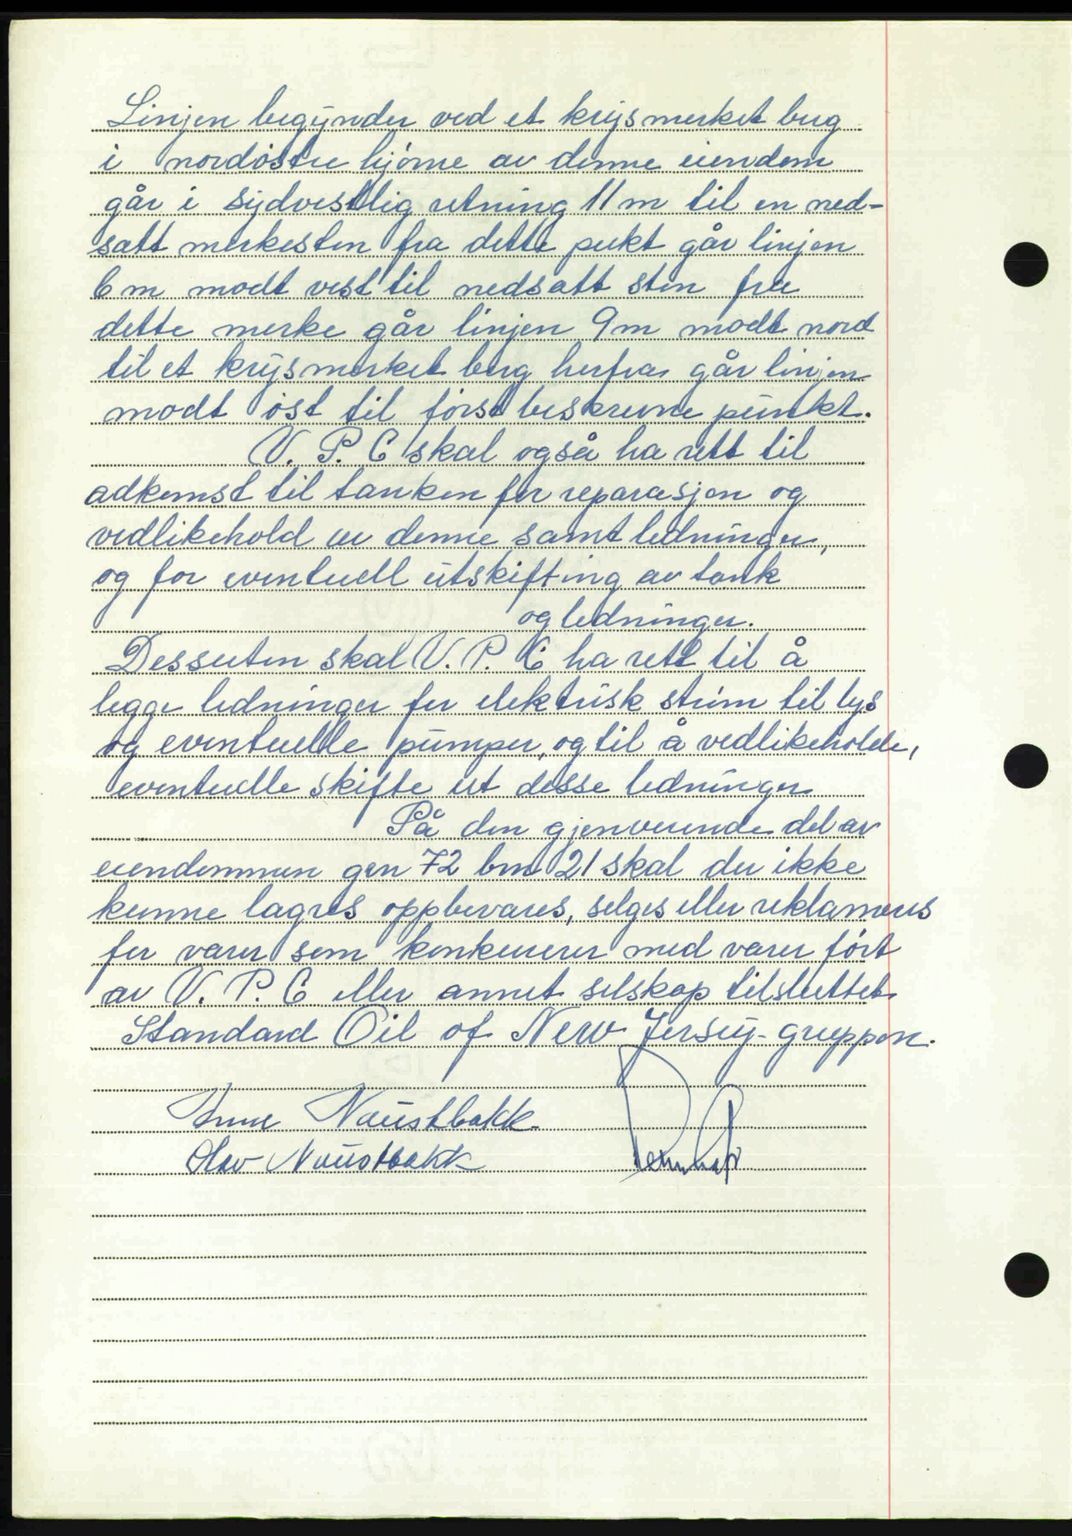 Linjen begynder ved et krysmerket berg
i nordøstre hjørne av denne eiendom
går i sydvestlig retning 11 m til en ned-
satt merkesten fra dette pukt går linjen
6 m modt vest til nedsatt sten fra
dette merke går linjen 9 m modt nord
til et krysmerket berg herfra går linjen
modt øst til først beskrevne punkt.
V. P. C skal også ha rett til
adkomst til tanken for reparasjon og
vedlikehold av denne, samt ledninger,
og for eventuell utskifting av tank
og ledninger.
Dessuten skal V. P. C ha rett til å
legge ledninger for elektrisk strøm til lys
og eventuelle pumper, og til å vedlikeholde,
eventuelle skifte ut desse ledninger
På den gjenverende del av
eiendommen gnr 72 bnr 21 skal der ikke
kunne lagres oppbevares, selges eller reklameres
for varer som konkurerer med varer ført
av V. P. C eller annet selskap tilsluttet
Standard Oil of New Jersey-gruppen.
Anne Naustbakk
Olav Naustbakk